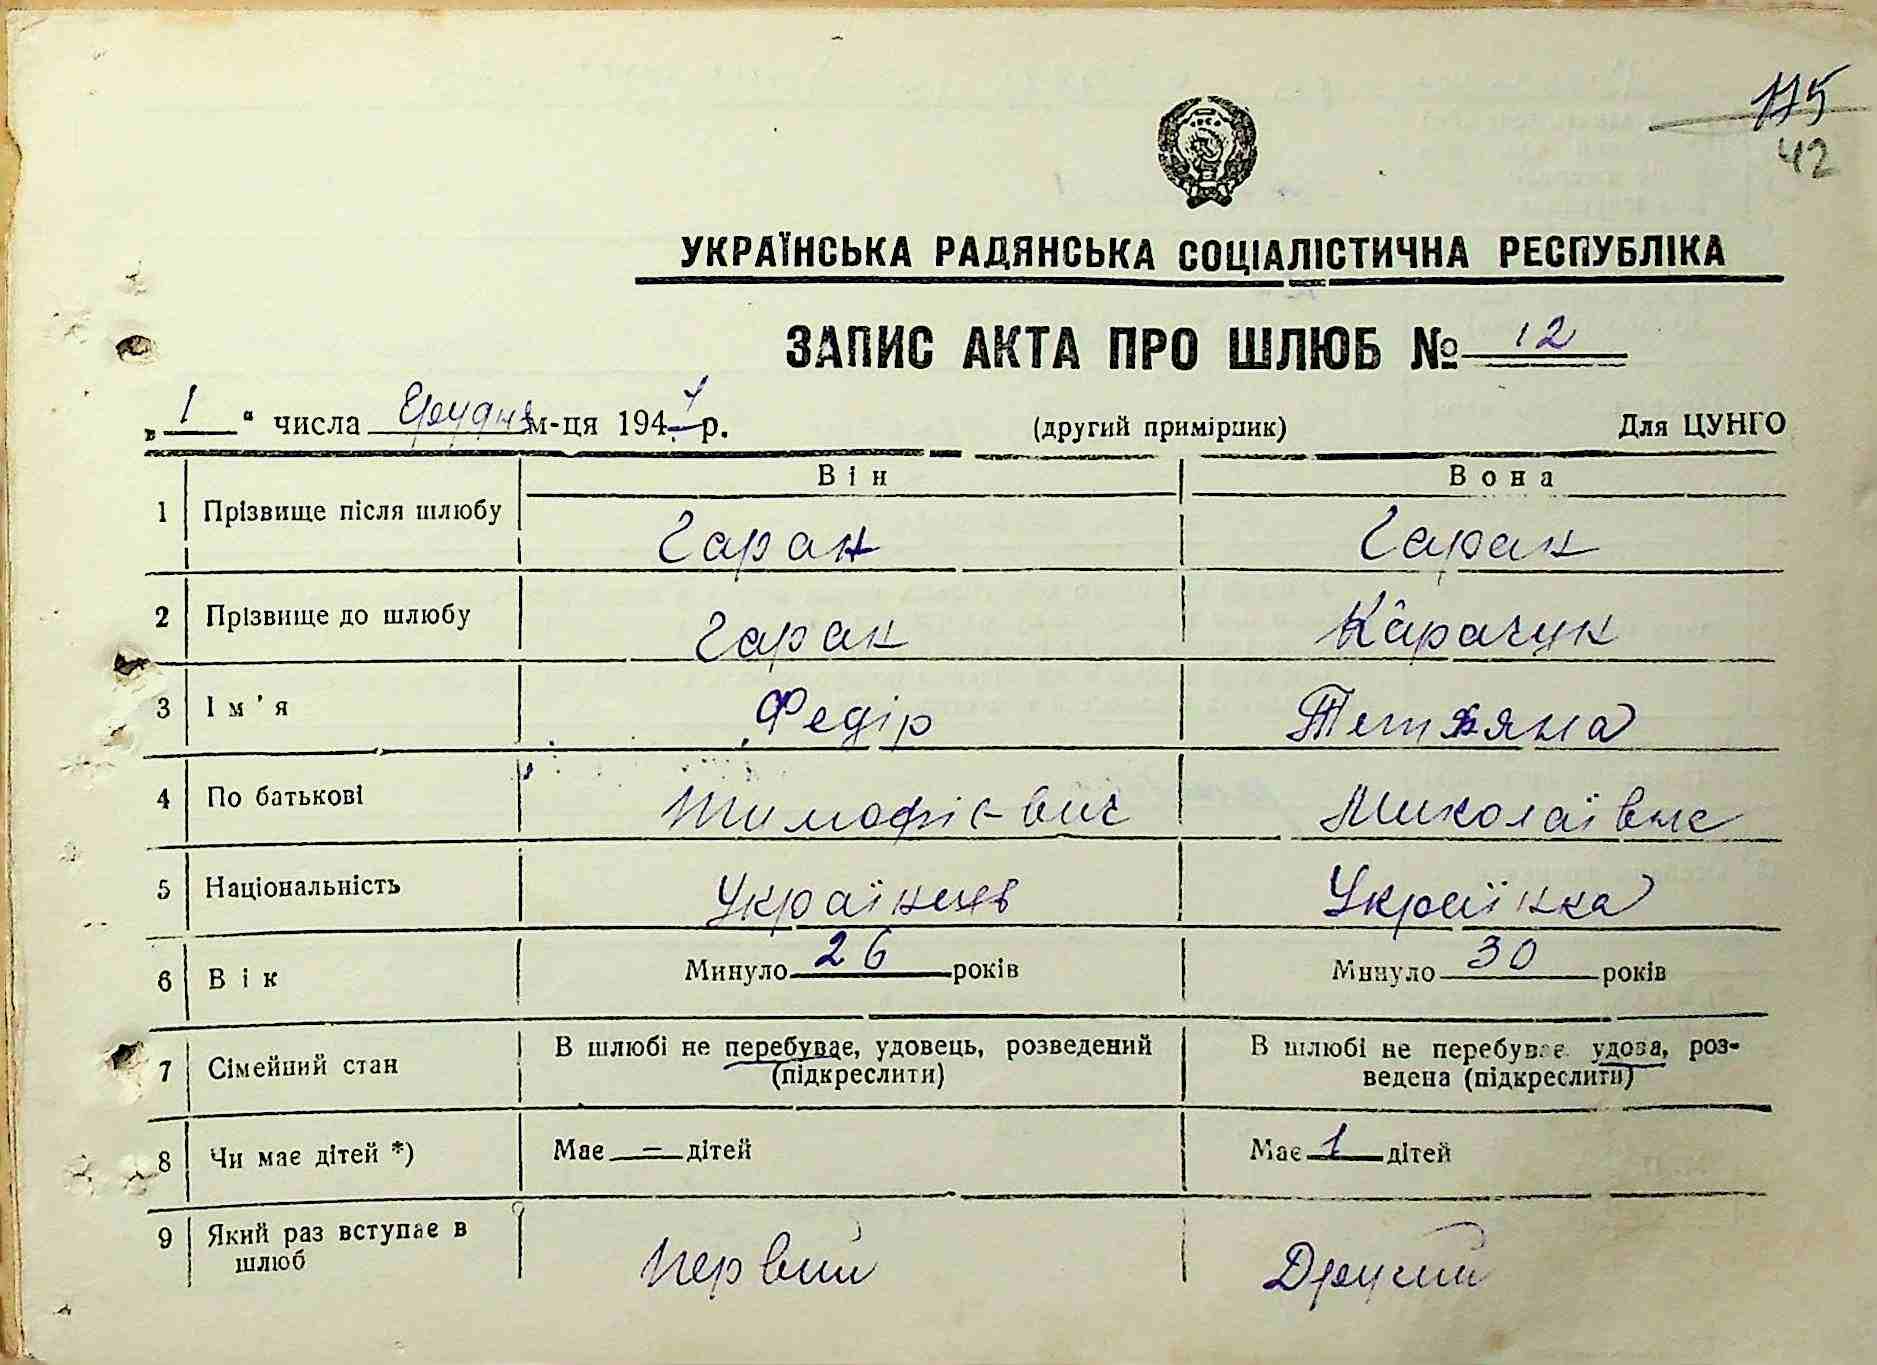 175
42
УКРАЇНСЬКА РАДЯНСЬКА СОЦІАЛІСТИЧНА РЕСПУБЛІКА
ЗАПИС АКТА ПРО ШЛЮБ № 12
„ 1 " числа Грудня м-ця 194 р. (другий примірник) Для ЦУНГО
Він Вона
1 Прізвище після шлюбу Гаран Гаран
2 Прізвище до шлюбу Гаран Карачук
3 Ім'я Федір Тетяна
4 По батькові Тимофієвич
5 Національність Українець Українка
6 Вік Минуло 26 років Минуло 30 років
7 Сімейний стан В шлюбі не перебуває, удовець, розведений В шлюбі не перебуває, удова, роз-
(підкреслити) ведена (підкреслити)
8 Чи має дітей *) Має — дітей Має 1 дітей
9 Який раз вступає в
шлюб Первий Другий